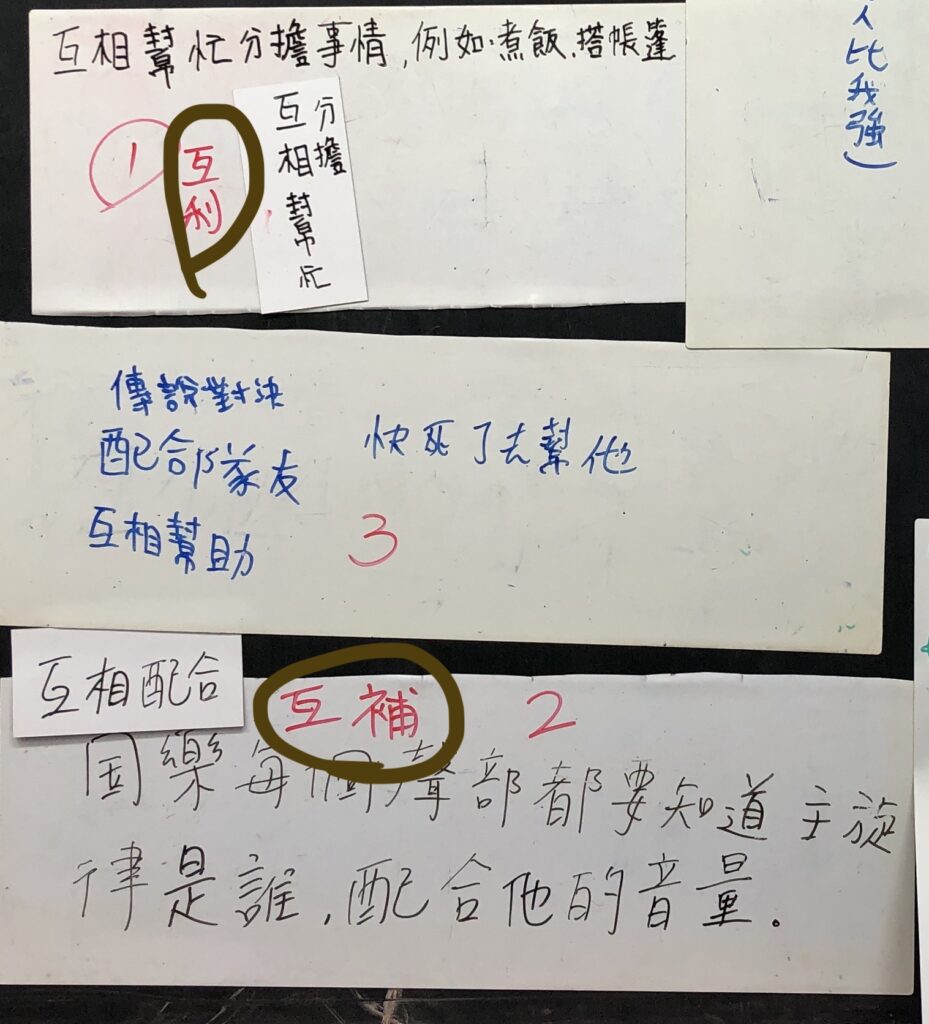 互相幫忙分擔事情,例如煮飯、搭帳蓬
1
互利
分擔
互相幫忙
人比我強)
傳說對決
配合隊友
互相幫助
快死了去幫他
3
互相配合
互補
2
國樂每個聲部都要知道主旋
律是誰,配合他的音量。